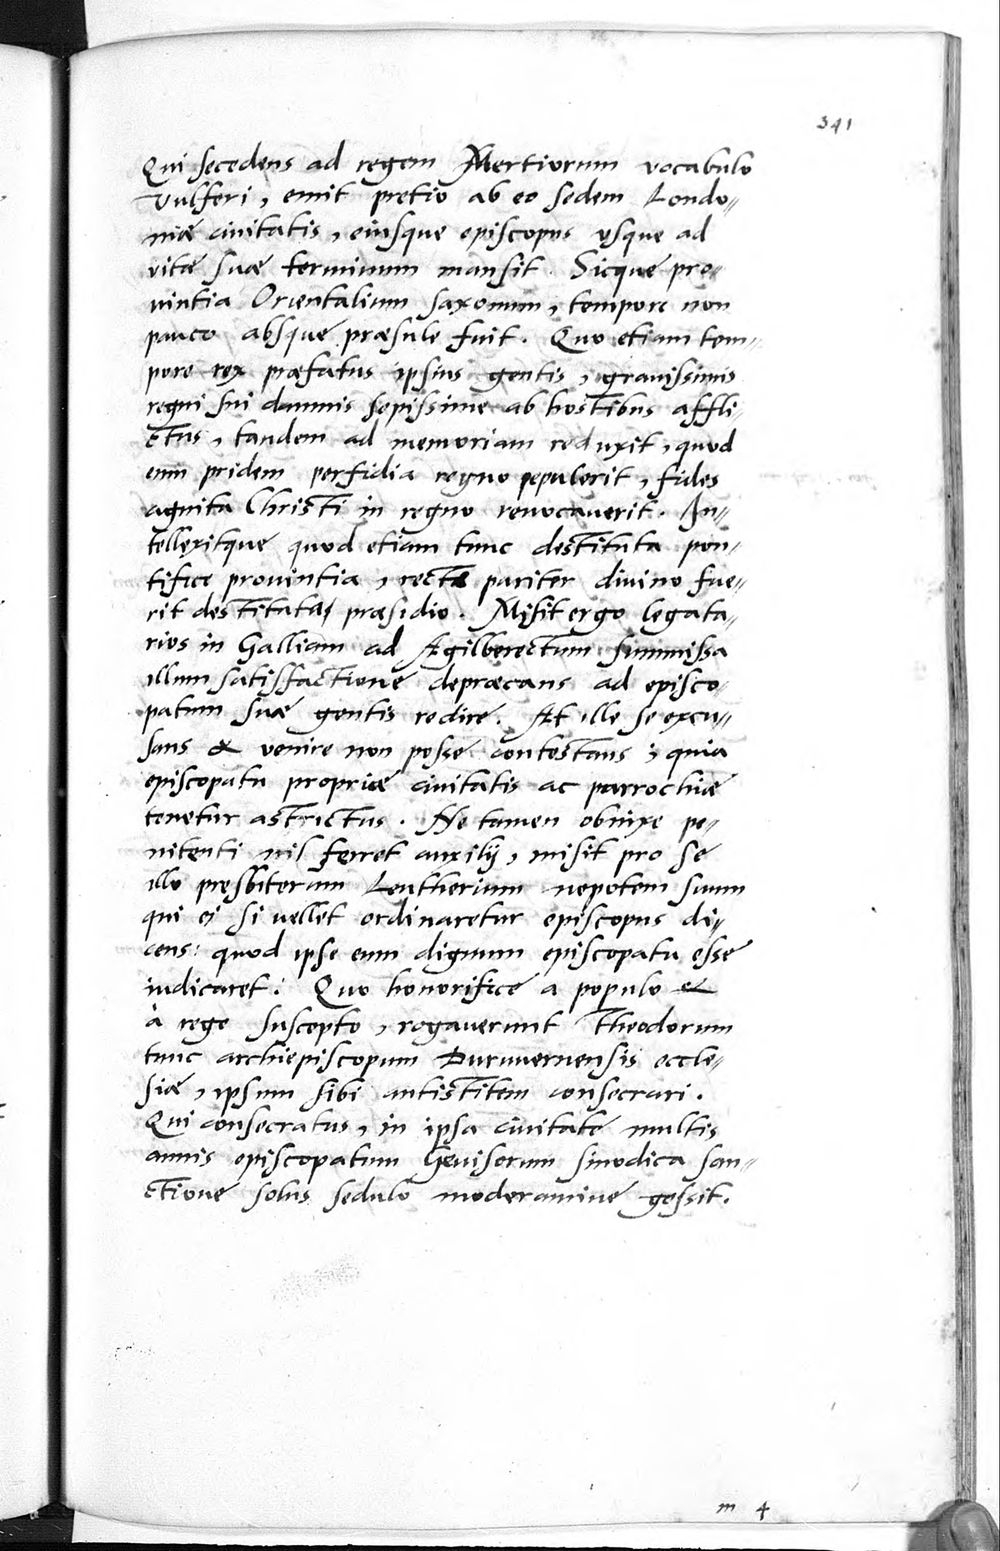 341
Qui secedens ad regem Mertiorum vocabulo
Vulferi, emit pretio ab eo sedem Londo„
niæ ciuitatis, eiusque episcopus vsque ad
vitæ suæ terminum mansit. Sicque pro„
uintia Orientalium saxonum, tempore non
pauco absque præsule fuit. Quo etiam tem„
pore rex præfatus ipsius gentis, grauissimis
regni sui damnis sepissime ab hostibus affli„
ctus, tandem ad memoriam reduxit, quod
eum pridem perfidia regno pepulerit, fides
agnita Christi in regno revocaverit. In„
tellexitque quod etiam tunc destituta pon„
tifice prouintia, recte pariter divino fue„
rit destitutas præsidio. Misit ergo legata„
rios in Galliam ad Agilberectum summissa
illum satisfactione depræcans ad episco„
patum suæ gentis redire. At ille se excu„
sans & venire non posse contestans; quia
episcopatu propriæ ciuitatis ac parrochiæ
tenetur astrictus. Ne tamen obnixe pe„
nitenti nil ferret auxilij, misit pro se
illo presbiterum Leutherium nepotem suum
qui ei si vellet ordinaretur episcopus di„
cens: quod ipse eum dignum episcopatu esse
iudicaret. Quo honorifice a populo &
à rege suscepto, rogaverunt Theodorum
tunc archiepiscopum Duruuernensis eccle„
siæ, ipsum sibi antistitem consecrari.
Qui consecratus, in ipsa ciuitate multis
annis episcopatum Geuisorum sinodica san„
ctione solus sedulo moderamine gessit.
m 4